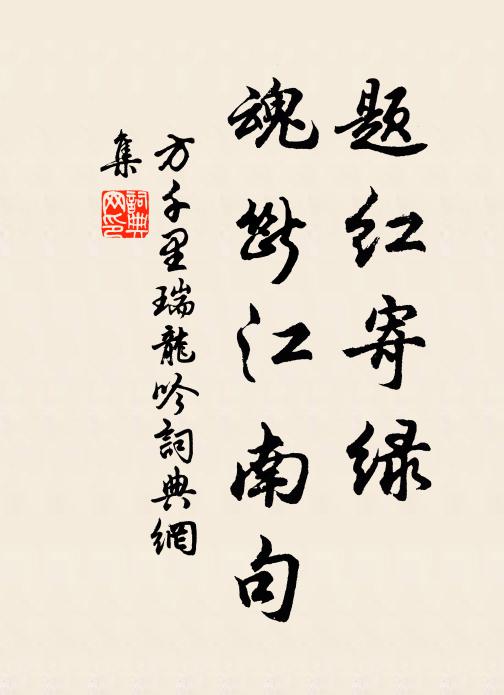 题红寄绿
魂断江南句
方千里瑞龍吟詞典網
集
詞典網印